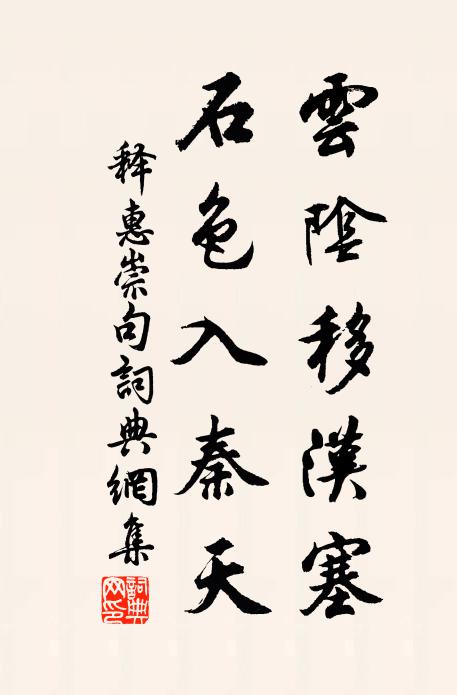 雲陰移漢塞
石色入秦天
释惠崇句詞典網集
詞典网印